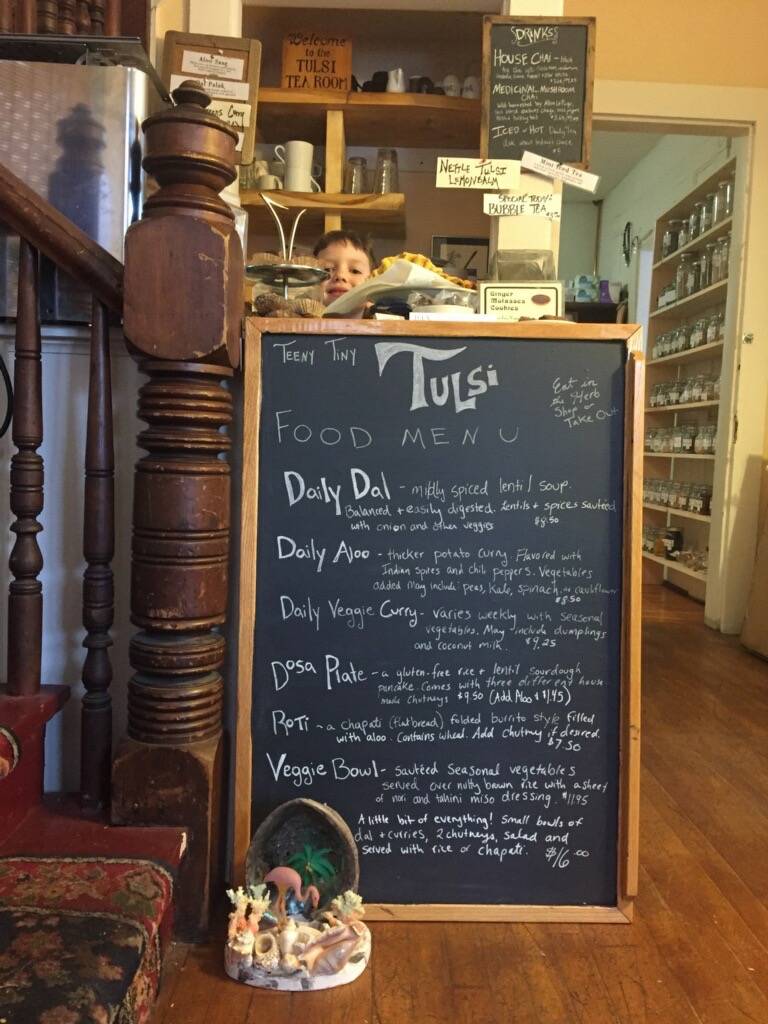 Welcome
to the
TULSI
TEA ROOM
DRINKS
HOUSE CHAI -
MEDICINAL MUSHROOM
CHAI
ICED or HOT Daily Tea
NETTLE TULSI
LEMONBALM
Mint Iced Tea
SPECIAL TODAY:
BUBBLE TEA
Ginger
Molasses
Cookies
TEENY TINY
TULSI
Eat in
the Herb
Shop or
Take Out
FOOD MENU
Daily Dal - mildly spiced lentil soup.
Balanced + easily digested. Lentils + spices sautéed
with onion and other veggies $8.50
Daily Aloo - thicker potato curry. Flavored with
Indian spices and chili peppers. Vegetables
added may include peas, kale, spinach or cauliflower
$8.50
Daily Veggie Curry - varies weekly with seasonal
vegetables. May include dumplings
and coconut milk. $9.25
Dosa Plate - a gluten-free rice + lentil sourdough
pancake. Comes with three different house
made chutneys $9.50 (Add Aloo + $1.45)
Roti - a chapati (flatbread) folded burrito style filled
with aloo. Contains wheat. Add chutney if desired.
$7.50
Veggie Bowl - sautéed seasonal vegetables
served over nutty brown rice with a sheet
of nori and tahini miso dressing. $11.95
A little bit of everything! Small bowls of
dal + curries, 2 chutneys, salad and
served with rice or chapati. $16.00